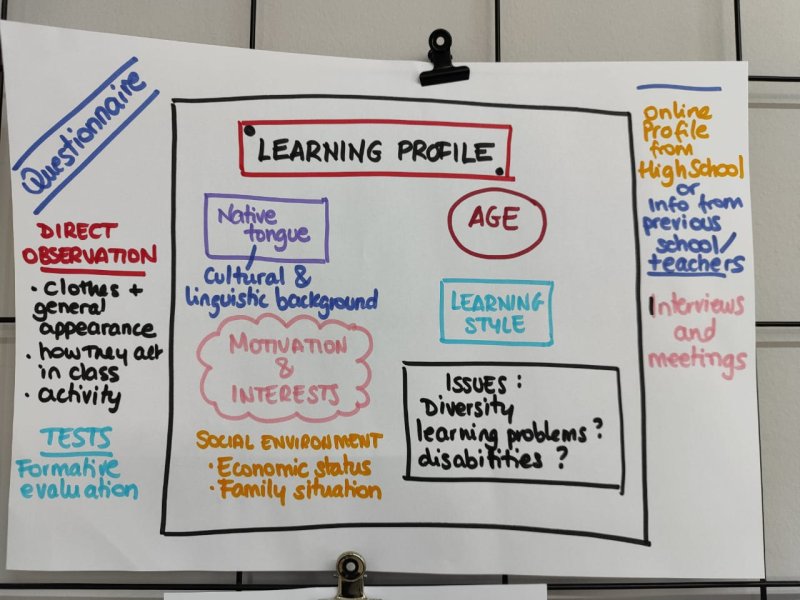 Questionnaire
DIRECT
OBSERVATION
• Clothes +
general
appearance
• how they act
in class
• activity
TESTS
Formative
evaluation
LEARNING PROFILE
Native
tongue
Cultural &
linguistic background
MOTIVATION
&
INTERESTS
SOCIAL ENVIRONMENT
• Economic status
• Family situation
AGE
LEARNING
STYLE
ISSUES:
Diversity
learning problems?
disabilities?
Online
Profile
from
High School
or
Info from
previous
school/
teachers
Interviews
and
meetings